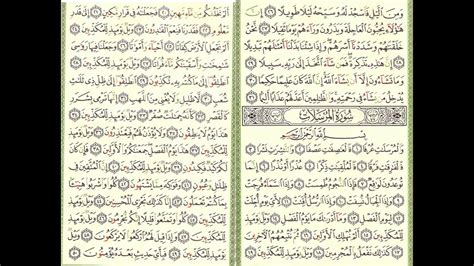 وَمِنَ ٱلَّيْلِ فَٱسْجُدْ لَهُۥ وَسَبِّحْهُ لَيْلًا طَوِيلًا ٢٦ إِنَّ
هَٰٓؤُلَآءِ يُحِبُّونَ ٱلْعَاجِلَةَ وَيَذَرُونَ وَرَآءَهُمْ يَوْمًا ثَقِيلًا ٢٧ نَّحْنُ
خَلَقْنَٰهُمْ وَشَدَدْنَآ أَسْرَهُمْ وَإِذَا شِئْنَا بَدَّلْنَآ أَمْثَٰلَهُمْ تَبْدِيلًا ٢٨
إِنَّ هَٰذِهِۦ تَذْكِرَةٌ فَمَن شَآءَ ٱتَّخَذَ إِلَىٰ رَبِّهِۦ سَبِيلًا ٢٩
وَمَا تَشَآءُونَ إِلَّآ أَن يَشَآءَ ٱللَّهُ إِنَّ ٱللَّهَ كَانَ عَلِيمًا حَكِيمًا ٣٠
يُدْخِلُ مَن يَشَآءُ فِى رَحْمَتِهِۦ وَٱلظَّٰلِمِينَ أَعَدَّ لَهُمْ عَذَابًا أَلِيمًا ٣١
سُورَةُ المُرْسَلَات
بِسْمِ ٱللَّهِ ٱلرَّحْمَٰنِ ٱلرَّحِيمِ
وَٱلْمُرْسَلَٰتِ عُرْفًا ١ فَٱلْعَٰصِفَٰتِ عَصْفًا ٢ وَٱلنَّٰشِرَٰتِ نَشْرًا ٣
فَٱلْفَٰرِقَٰتِ فَرْقًا ٤ فَٱلْمُلْقِيَٰتِ ذِكْرًا ٥ عُذْرًا أَوْ نُذْرًا ٦
إِنَّمَا تُوعَدُونَ لَوَٰقِعٌ ٧ فَإِذَا ٱلنُّجُومُ طُمِسَتْ ٨ وَإِذَا ٱلسَّمَآءُ
فُرِجَتْ ٩ وَإِذَا ٱلْجِبَالُ نُسِفَتْ ١٠ وَإِذَا ٱلرُّسُلُ أُقِّتَتْ ١١ لِأَىِّ يَوْمٍ أُجِّلَتْ ١٢
لِيَوْمِ ٱلْفَصْلِ ١٣ وَمَآ أَدْرَىٰكَ مَا يَوْمُ ٱلْفَصْلِ ١٤ وَيْلٌ يَوْمَئِذٍ
لِّلْمُكَذِّبِينَ ١٥ أَلَمْ نُهْلِكِ ٱلْأَوَّلِينَ ١٦ ثُمَّ نُتْبِعُهُمُ ٱلْءَاخِرِينَ
١٧ كَذَٰلِكَ نَفْعَلُ بِٱلْمُجْرِمِينَ ١٨ وَيْلٌ يَوْمَئِذٍ لِّلْمُكَذِّبِينَ ١٩
أَلَمْ نَخْلُقكُّم مِّن مَّآءٍ مَّهِينٍ ٢٠ فَجَعَلْنَٰهُ فِى قَرَارٍ مَّكِينٍ ٢١ إِلَىٰ قَدَرٍ
مَّعْلُومٍ ٢٢ فَقَدَرْنَا فَنِعْمَ ٱلْقَٰدِرُونَ ٢٣ وَيْلٌ يَوْمَئِذٍ لِّلْمُكَذِّبِينَ ٢٤
أَلَمْ نَجْعَلِ ٱلْأَرْضَ كِفَاتًا ٢٥ أَحْيَآءً وَأَمْوَٰتًا ٢٦ وَجَعَلْنَا فِيهَا رَوَٰسِىَ
شَٰمِخَٰتٍ وَأَسْقَيْنَٰكُم مَّآءً فُرَاتًا ٢٧ وَيْلٌ يَوْمَئِذٍ لِّلْمُكَذِّبِينَ
٢٨ ٱنطَلِقُوٓا۟ إِلَىٰ مَا كُنتُم بِهِۦ تُكَذِّبُونَ ٢٩ ٱنطَلِقُوٓا۟ إِلَىٰ ظِلٍّ ذِى ثَلَٰثِ
شُعَبٍ ٣٠ لَّا ظَلِيلٍ وَلَا يُغْنِى مِنَ ٱللَّهَبِ ٣١ إِنَّهَا تَرْمِى بِشَرَرٍ
كَٱلْقَصْرِ ٣٢ كَأَنَّهُۥ جِمَٰلَتٌ صُفْرٌ ٣٣ وَيْلٌ يَوْمَئِذٍ لِّلْمُكَذِّبِينَ ٣٤
هَٰذَا يَوْمُ لَا يَنطِقُونَ ٣٥ وَلَا يُؤْذَنُ لَهُمْ فَيَعْتَذِرُونَ ٣٦ وَيْلٌ يَوْمَئِذٍ
لِّلْمُكَذِّبِينَ ٣٧ هَٰذَا يَوْمُ ٱلْفَصْلِ جَمَعْنَٰكُمْ وَٱلْأَوَّلِينَ ٣٨ فَإِن كَانَ
لَكُمْ كَيْدٌ فَكِيدُونِ ٣٩ وَيْلٌ يَوْمَئِذٍ لِّلْمُكَذِّبِينَ ٤٠ إِنَّ ٱلْمُتَّقِينَ فِى
ظِلَٰلٍ وَعُيُونٍ ٤١ وَفَوَٰكِهَ مِمَّا يَشْتَهُونَ ٤٢ كُلُوا۟ وَٱشْرَبُوا۟ هَنِيٓـًٔۢا
بِمَا كُنتُمْ تَعْمَلُونَ ٤٣ إِنَّا كَذَٰلِكَ نَجْزِى ٱلْمُحْسِنِينَ ٤٤ وَيْلٌ يَوْمَئِذٍ
لِّلْمُكَذِّبِينَ ٤٥ كُلُوا۟ وَتَمَتَّعُوا۟ قَلِيلًا إِنَّكُم مُّجْرِمُونَ ٤٦ وَيْلٌ يَوْمَئِذٍ
لِّلْمُكَذِّبِينَ ٤٧ وَإِذَا قِيلَ لَهُمُ ٱرْكَعُوا۟ لَا يَرْكَعُونَ ٤٨ وَيْلٌ
يَوْمَئِذٍ لِّلْمُكَذِّبِينَ ٤٩ فَبِأَىِّ حَدِيثٍۭ بَعْدَهُۥ يُؤْمِنُونَ ٥٠